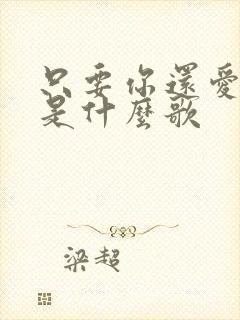 只要你還愛
是什麼歌
梁超